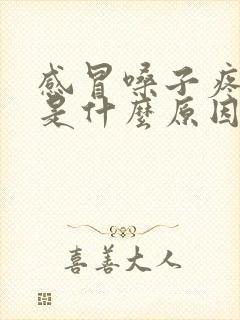 感冒嗓子疼
是什麼原因
喜善大人